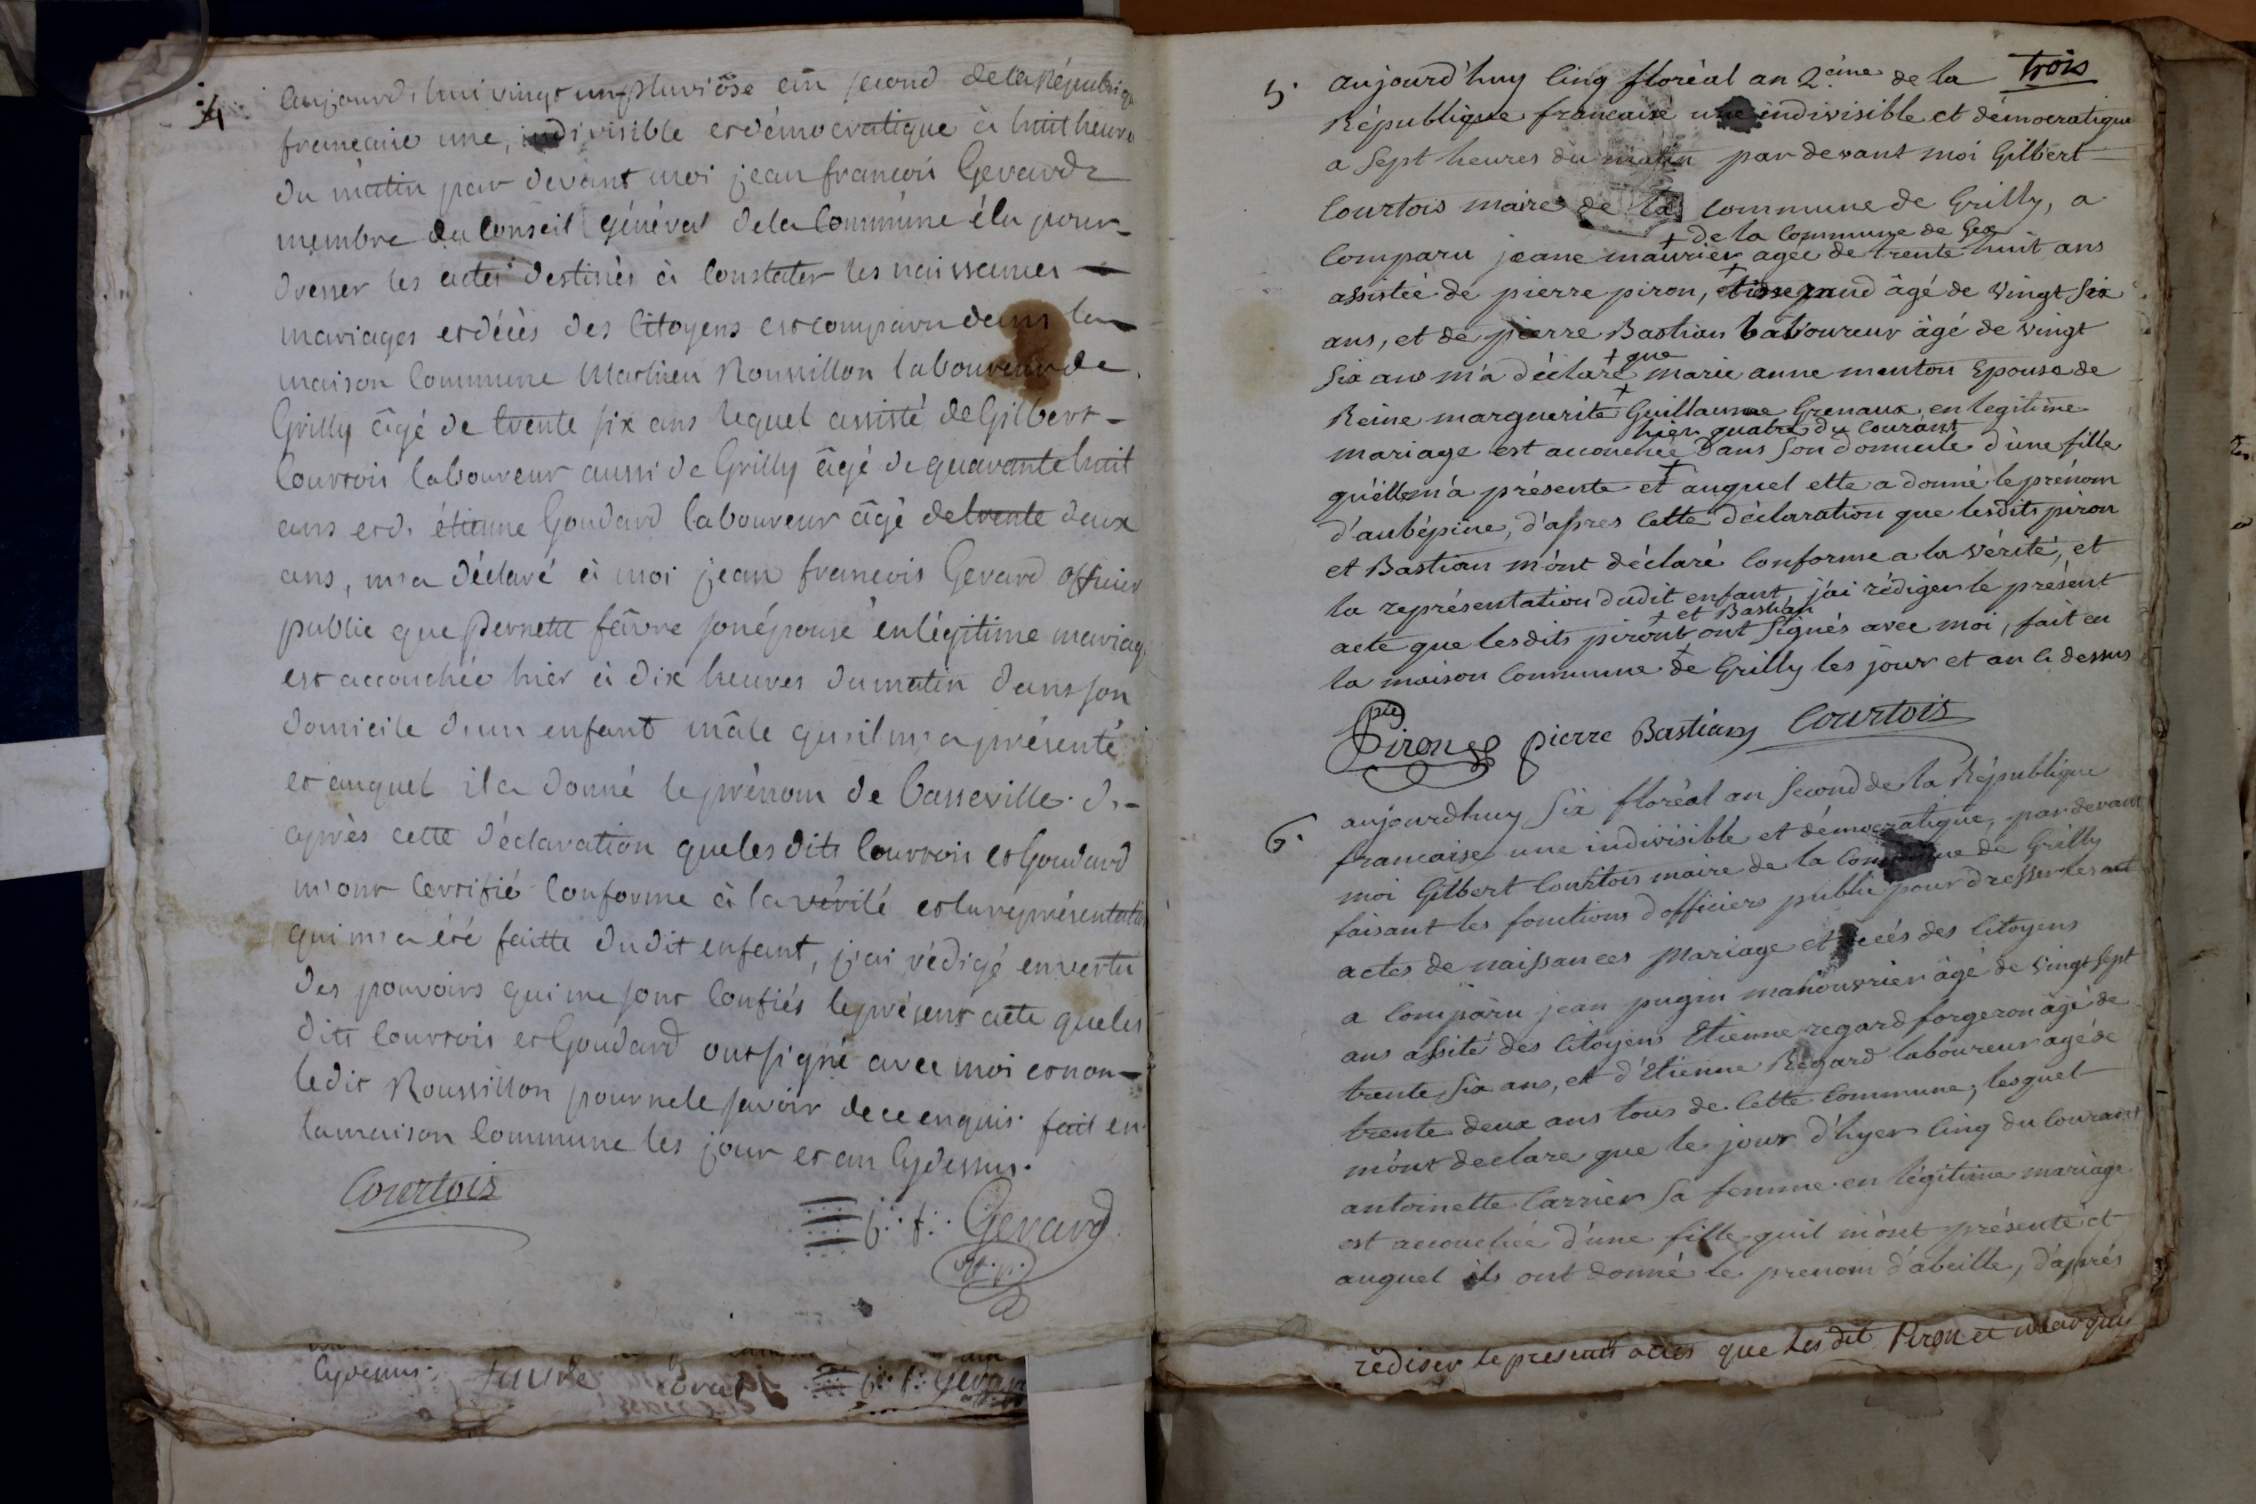 4
aujourd'hui vingt un pluviôse an second de la République
française une, indivisible et démocratique à huit heures
du matin par devant moi jean françois Gerard
membre du Conseil général de la Commune élu pour
dresser les actes destinés à Constater les naissances
mariages et décès des Citoyens est comparu dans la
maison Commune Mathieu Roussillon laboureur de
Grilly âgé de trente six ans lequel assisté de Gilbert
Courtois laboureur aussi de Grilly âgé de quarante huit
ans et d. étienne Goudard laboureur âgé de trente deux
ans, m'a déclaré à moi jean francois Gerard officier
public que Pernette faivre son épouse en légitime mariage
est accouchée hier à dix heures du matin dans son
domicile d'un enfant mâle qu'il m'a présenté
et auquel il a donné le prénom de Basseville. d.
après cette déclaration que les dits Courtois et Goudard
m'ont Certifié Conforme à la vérité et la représentation
qui m'a été faitte du dit enfant, j'ai rédigé en vertu
des pouvoirs qui me sont Confiés le présent acte que les
dits Courtois et Goudard ont signé avec moi et non
ledit Roussillon pour ne le savoir de ce enquis. fait en
la maison Commune les jour et an Cydessus.
Courtois
j. f. Gerard
Cydessus. favre j. f. Gerard
trois
5. aujourd'huy Cinq floréal an 2.ème de la
République francaise une indivisible et démocratique
a Sept heures du matin par devant moi Gilbert
Courtois maire de la commune de Grilly, a
+ de la Commune de Gex
Comparu jeane maurier agée de trente huit ans
assistée de pierre piron, tisserand âgé de vingt Six
ans, et de pierre Bastian laboureur âgé de vingt
+ que
Six ans m'a déclaré marie anne menton Epouse de
Reine marguerite Guillaume Grenaux en legitime
hier quatre du Courant
mariage est accouchée dans Son domicile d'une fille
qu'elle m'a présenté et auquel elle a donné le prénom
d'aubépine, d'apres Cette déclaration que lesdits piron
et Bastian m'ont déclaré Conforme a la vérité, et
la représentation dudit enfant j'ai rédiger le présent
+ et Bastian
acte que lesdits piront ont Signés avec moi, fait en
la maison Commune de Grilly les jour et an ci dessus
Pre Piron pierre Bastian Courtois
6. aujourdhuy Six floréal an Second de la République
francaise une indivisible et démocratique, par devant
moi Gilbert Courtois maire de la Commune de Grilly
faisant les fonctions d'officiers public pour dresser les act
actes de naissances Mariage et décés des Citoyens
a Comparu jean pugin manouvrier âgé de vingt Sept
ans assité des Citoyens Etienne regard forgeron âgé de
trente Six ans, et d'Etienne Regard laboureur agé de
trente deux ans tous de Cette Commune, lesquel
m'ont declare que le jour d'hyer Cinq du Courant
antoinette Carrier Sa femme en légitime mariage
est accouchée d'une fille quil m'ont présenté et
auquel ils ont donné le prenom d'abeille, d'aprés
rédiser le present actes que les dit Piron et